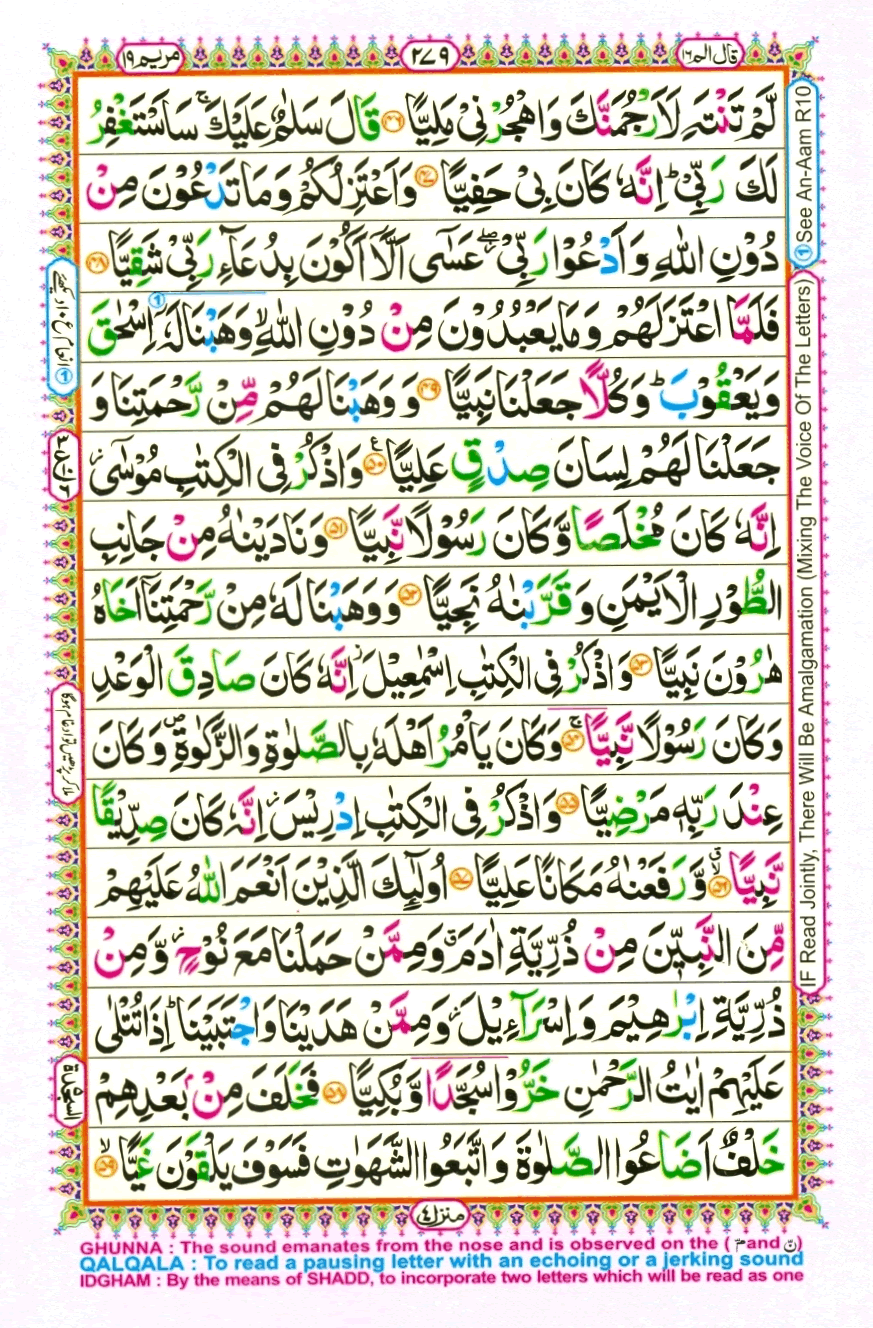 قال الم ١٦
٢٧٩
مريم ١٩
لَّمْ تَنْتَهِ لَاَرْجُمَنَّكَ وَاهْجُرْنِيْ مَلِيًّا ۝٤٦ قَالَ سَلٰمٌ عَلَيْكَ ۚ سَاَسْتَغْفِرُ
لَكَ رَبِّيْ ؕ اِنَّهٗ كَانَ بِيْ حَفِيًّا ۝٤٧ وَاَعْتَزِلُكُمْ وَمَا تَدْعُوْنَ مِنْ
دُوْنِ اللّٰهِ وَاَدْعُوْا رَبِّيْ ۖ عَسٰۤى اَلَّاۤ اَكُوْنَ بِدُعَآءِ رَبِّيْ شَقِيًّا ۝٤٨
فَلَمَّا اعْتَزَلَهُمْ وَمَا يَعْبُدُوْنَ مِنْ دُوْنِ اللّٰهِ ۙ وَهَبْنَا لَهٗۤ اِسْحٰقَ
وَيَعْقُوْبَ ؕ وَكُلًّا جَعَلْنَا نَبِيًّا ۝٤٩ وَوَهَبْنَا لَهُمْ مِّنْ رَّحْمَتِنَا وَ
جَعَلْنَا لَهُمْ لِسَانَ صِدْقٍ عَلِيًّا ۝٥٠ وَاذْكُرْ فِي الْكِتٰبِ مُوْسٰۤى ؗ
اِنَّهٗ كَانَ مُخْلَصًا وَّكَانَ رَسُوْلًا نَّبِيًّا ۝٥١ وَنَادَيْنٰهُ مِنْ جَانِبِ
الطُّوْرِ الْاَيْمَنِ وَقَرَّبْنٰهُ نَجِيًّا ۝٥٢ وَوَهَبْنَا لَهٗ مِنْ رَّحْمَتِنَاۤ اَخَاهُ
هٰرُوْنَ نَبِيًّا ۝٥٣ وَاذْكُرْ فِي الْكِتٰبِ اِسْمٰعِيْلَ ؗ اِنَّهٗ كَانَ صَادِقَ الْوَعْدِ
وَكَانَ رَسُوْلًا نَّبِيًّا ۝٥٤ ۚ وَكَانَ يَاْمُرُ اَهْلَهٗ بِالصَّلٰوةِ وَالزَّكٰوةِ ۪ وَكَانَ
عِنْدَ رَبِّهٖ مَرْضِيًّا ۝٥٥ وَاذْكُرْ فِي الْكِتٰبِ اِدْرِيْسَ ؗ اِنَّهٗ كَانَ صِدِّيْقًا
نَّبِيًّا ۝٥٦ ۙ وَّرَفَعْنٰهُ مَكَانًا عَلِيًّا ۝٥٧ اُولٰٓئِكَ الَّذِيْنَ اَنْعَمَ اللّٰهُ عَلَيْهِمْ
مِّنَ النَّبِيّٖنَ مِنْ ذُرِّيَّةِ اٰدَمَ ۗ وَمِمَّنْ حَمَلْنَا مَعَ نُوْحٍ ؗ وَّمِنْ
ذُرِّيَّةِ اِبْرٰهِيْمَ وَاِسْرَآءِيْلَ ؗ وَمِمَّنْ هَدَيْنَا وَاجْتَبَيْنَا ؕ اِذَا تُتْلٰى
عَلَيْهِمْ اٰيٰتُ الرَّحْمٰنِ خَرُّوْا سُجَّدًا وَّبُكِيًّا ۝٥٨ فَخَلَفَ مِنْۢ بَعْدِهِمْ
خَلْفٌ اَضَاعُوا الصَّلٰوةَ وَاتَّبَعُوا الشَّهَوٰتِ فَسَوْفَ يَلْقَوْنَ غَيًّا ۝٥٩ ۙ
① See An-Aam R10
IF Read Jointly, There Will Be Amalgamation (Mixing The Voice Of The Letters)
① انعام ع ١٠ دیکھئے
ملا کر پڑھیں تو ادغام ہوگا
السجدة
منزل ٤
GHUNNA : The sound emanates from the nose and is observed on the ( مّ and نّ )
QALQALA : To read a pausing letter with an echoing or a jerking sound
IDGHAM : By the means of SHADD, to incorporate two letters which will be read as one